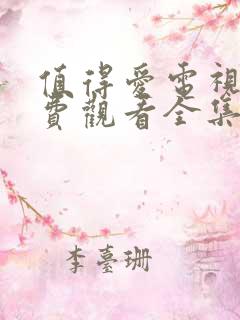 值得愛電視
費觀看全集
李臺珊